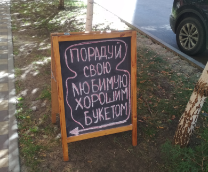 ПОРАДУЙ
СВОЮ
ЛЮБИМУЮ
ХОРОШИМ
БУКЕТОМ